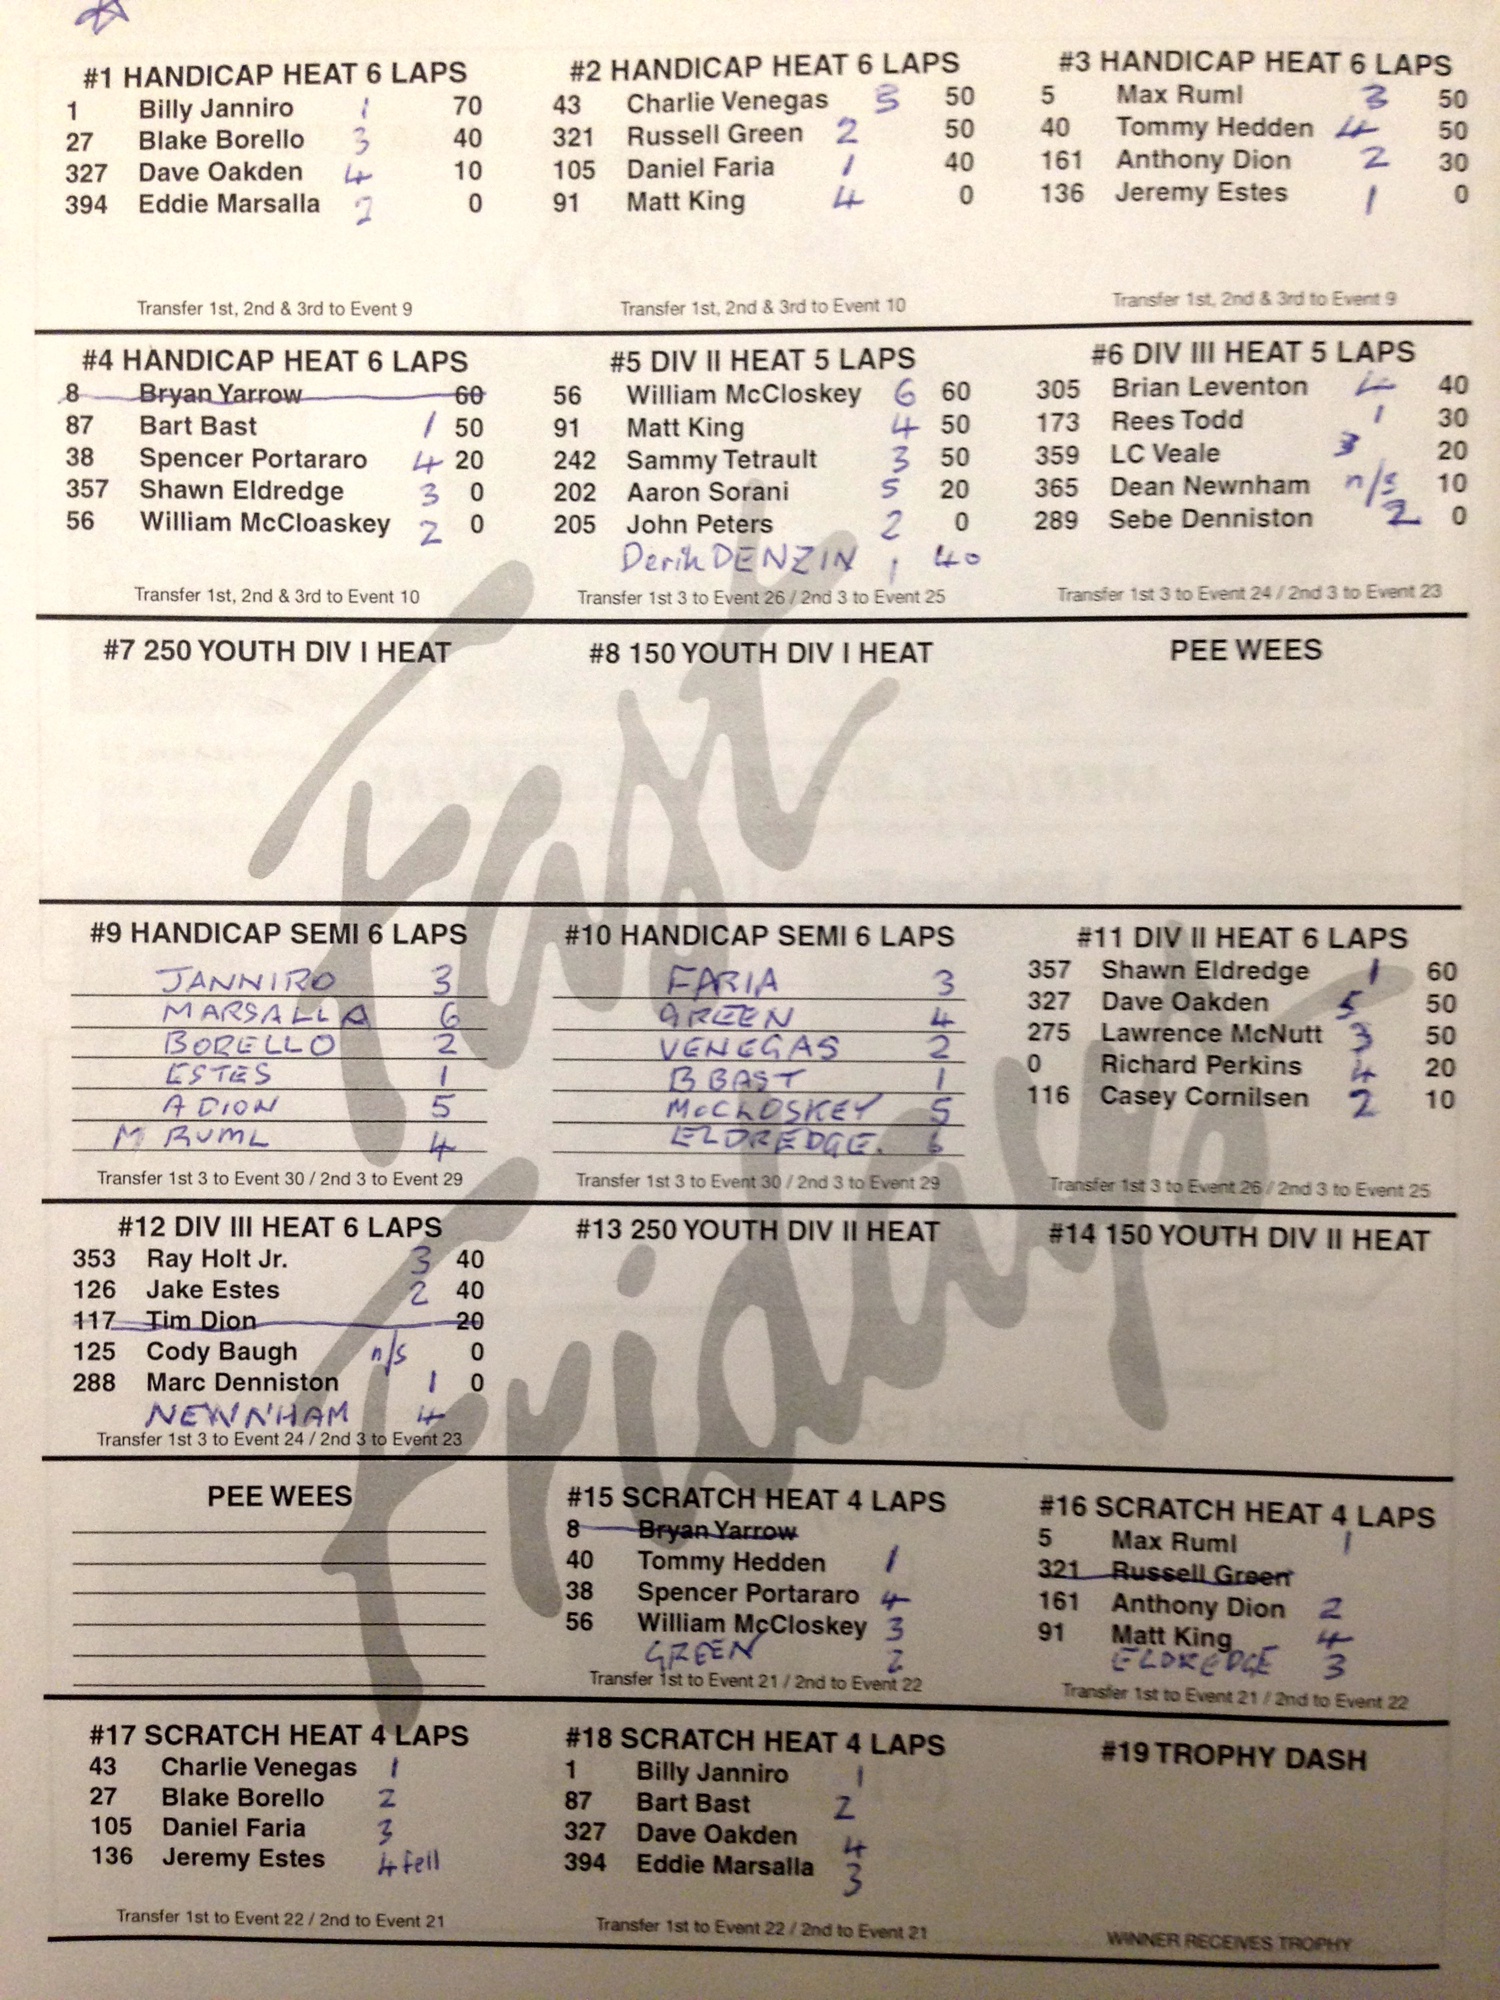 #1 HANDICAP HEAT 6 LAPS
1 Billy Janniro 1 70
27 Blake Borello 3 40
327 Dave Oakden 4 10
394 Eddie Marsalla 2 0
Transfer 1st, 2nd & 3rd to Event 9
#2 HANDICAP HEAT 6 LAPS
43 Charlie Venegas 3 50
321 Russell Green 2 50
105 Daniel Faria 1 40
91 Matt King 4 0
Transfer 1st, 2nd & 3rd to Event 10
#3 HANDICAP HEAT 6 LAPS
5 Max Ruml 3 50
40 Tommy Hedden 4 50
161 Anthony Dion 2 30
136 Jeremy Estes 1 0
Transfer 1st, 2nd & 3rd to Event 9
#4 HANDICAP HEAT 6 LAPS
8 Bryan Yarrow 60
87 Bart Bast 1 50
38 Spencer Portararo 4 20
357 Shawn Eldredge 3 0
56 William McCloaskey 2 0
Transfer 1st, 2nd & 3rd to Event 10
#5 DIV II HEAT 5 LAPS
56 William McCloskey 6 60
91 Matt King 4 50
242 Sammy Tetrault 3 50
202 Aaron Sorani 5 20
205 John Peters 2 0
Derik DENZIN 1 40
Transfer 1st 3 to Event 26 / 2nd 3 to Event 25
#6 DIV III HEAT 5 LAPS
305 Brian Leventon 4 40
173 Rees Todd 1 30
359 LC Veale 3 20
365 Dean Newnham n/s 10
289 Sebe Denniston 2 0
Transfer 1st 3 to Event 24 / 2nd 3 to Event 23
#7 250 YOUTH DIV I HEAT
#8 150 YOUTH DIV I HEAT
PEE WEES
Fast
Fridays
#9 HANDICAP SEMI 6 LAPS
JANNIRO 3
MARSALLA 6
BORELLO 2
ESTES 1
A DION 5
M RUML 4
Transfer 1st 3 to Event 30 / 2nd 3 to Event 29
#10 HANDICAP SEMI 6 LAPS
FARIA 3
GREEN 4
VENEGAS 2
B BAST 1
McCLOSKEY 5
ELDREDGE. 6
Transfer 1st 3 to Event 30 / 2nd 3 to Event 29
#11 DIV II HEAT 6 LAPS
357 Shawn Eldredge 1 60
327 Dave Oakden 5 50
275 Lawrence McNutt 3 50
0 Richard Perkins 4 20
116 Casey Cornilsen 2 10
Transfer 1st 3 to Event 26 / 2nd 3 to Event 25
#12 DIV III HEAT 6 LAPS
353 Ray Holt Jr. 3 40
126 Jake Estes 2 40
117 Tim Dion 20
125 Cody Baugh n/s 0
288 Marc Denniston 1 0
NEWNHAM 4
Transfer 1st 3 to Event 24 / 2nd 3 to Event 23
#13 250 YOUTH DIV II HEAT
#14 150 YOUTH DIV II HEAT
PEE WEES
#15 SCRATCH HEAT 4 LAPS
8 Bryan Yarrow
40 Tommy Hedden 1
38 Spencer Portararo 4
56 William McCloskey 3
GREEN 2
Transfer 1st to Event 21 / 2nd to Event 22
#16 SCRATCH HEAT 4 LAPS
5 Max Ruml 1
321 Russell Green
161 Anthony Dion 2
91 Matt King 4
ELDREDGE 3
Transfer 1st to Event 21 / 2nd to Event 22
#17 SCRATCH HEAT 4 LAPS
43 Charlie Venegas 1
27 Blake Borello 2
105 Daniel Faria 3
136 Jeremy Estes 4 fell
Transfer 1st to Event 22 / 2nd to Event 21
#18 SCRATCH HEAT 4 LAPS
1 Billy Janniro 1
87 Bart Bast 2
327 Dave Oakden 4
394 Eddie Marsalla 3
Transfer 1st to Event 22 / 2nd to Event 21
#19 TROPHY DASH
WINNER RECEIVES TROPHY